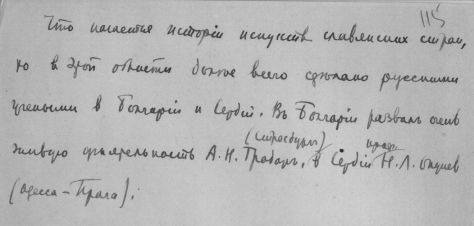 115
Что касается исторiи искусств славянских стран,
то в этой области больше всего сделано русскими
учеными в Болгарiи и Сербiи. Въ Болгарiи развилъ очень
(Страсбургъ) Прага
живую деятельность А. Н. Грабаръ, в Сербiи Н. Л. Окунев
(Одесса – Прага):